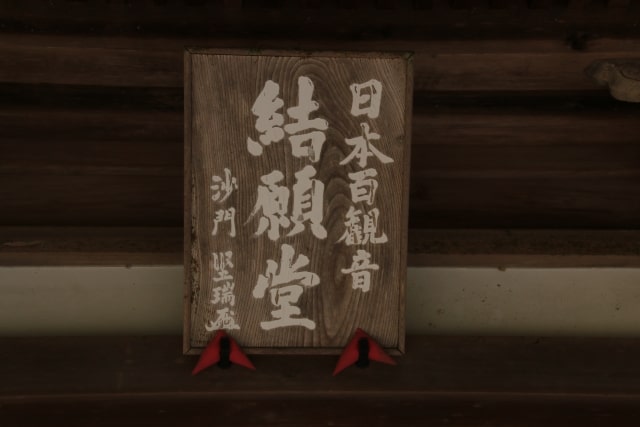 日本百観音
結願堂
沙門 堅瑞